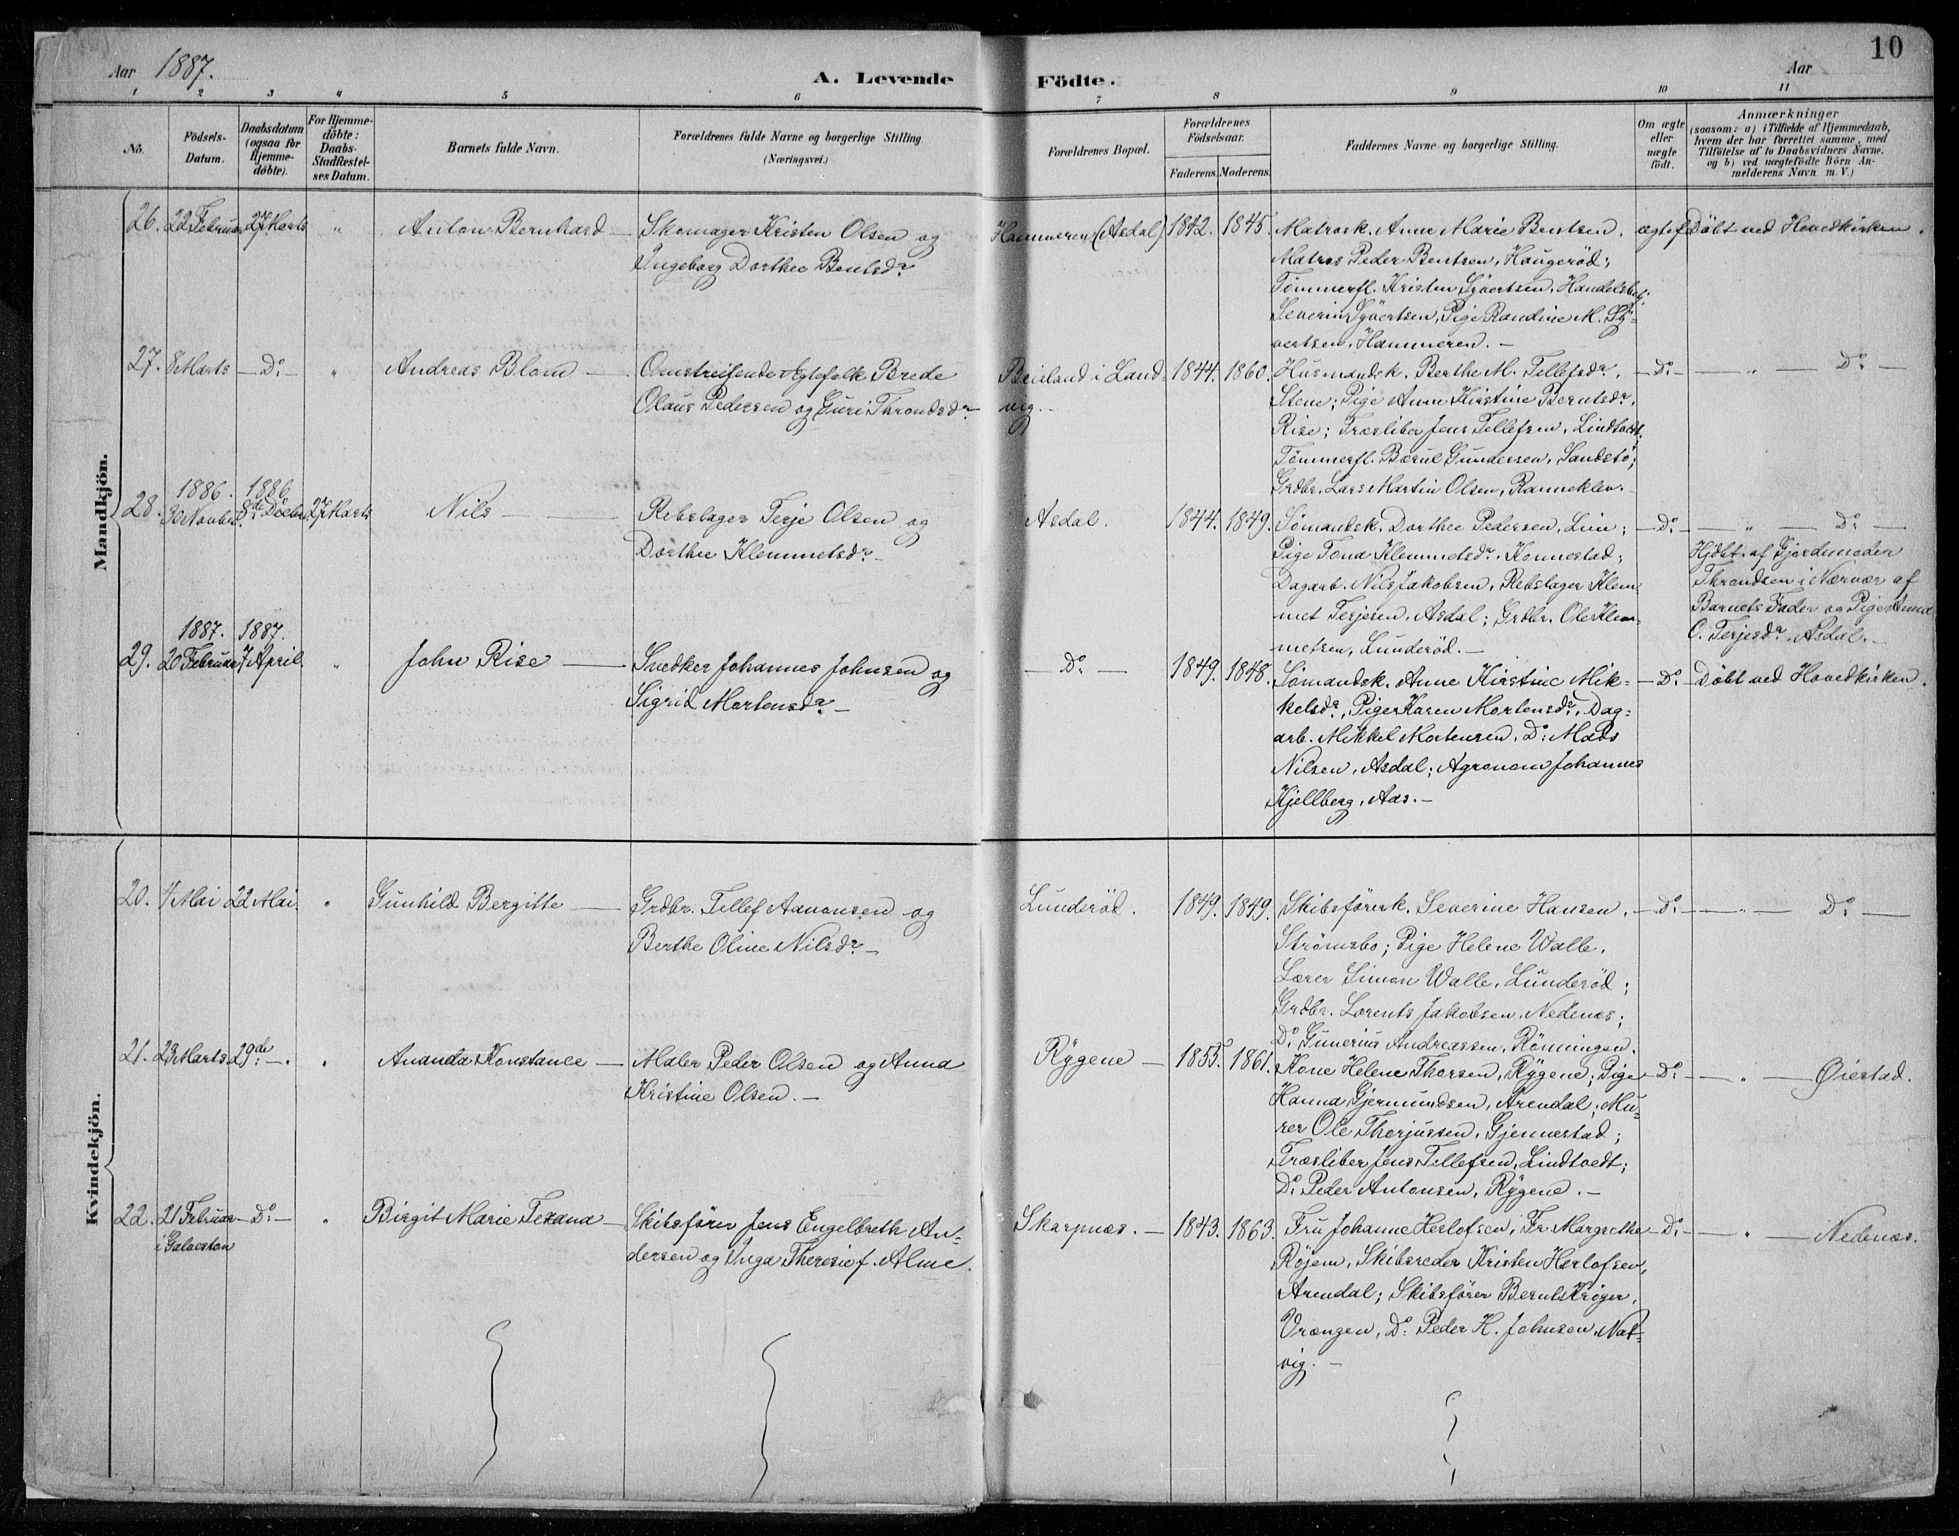 10
Aar 1887. A. Levende Födte. Aar
1 2 3 4 5 6 7 8 9 10 11
No. Födsels-Datum. Daabsdatum (ogsaa for Hjemme-döbte). For Hjemme-döbte: Daabs-Stadfæstel-ses Datum. Barnets fulde Navn. Forældrenes fulde Navne og borgerlige Stilling. (Næringsvei.) Forældrenes Bopæl. Forældrenes Födselsaar. Faderens. Moderens. Faddernes Navne og borgerlige Stilling. Om ægte eller uægte födt. Anmærkninger
(saasom: a) i Tilfælde af Hjemmedaab,
hvem der har forrettet samme, med
Tilföielse af to Daabsvidners Navne.
og b) ved uægtefödte Börn An-
melderens Navn m. V.)
Mandkjön.
26. 22 Februar 27 Marts " Anton Bernhard — Skomager Kristen Olsen og
Ingeborg Dorthee Bentsdr
Hammeren (Asdal) 1842. 1845. Matrosk. Anne Marie Bentsen,
Matros Peder Bentsen, Haugeröd;
Tømmerfl. Kristen Syvertsen, Handelsbetj.
Severin Syvertsen, Pige Randine M. Sy-
vertsen, Hammeren. —
ægtef. Döbt ved Hovedkirken.
27. 8 Marts — Do — " Andreas Blom — Omstreifende Ægtefolk Brede
Olaus Pedersen og Guri Throndsdr —
Beisland i Land-
vig. —
1844. 1860. Husmandsk. Berthe M. Tellefsdr,
Stene; Pige Anne Kirstine Berntsdr,
Rise; Træsliber Jens Tellefsen, Lindtvedt,
Tømmerfl. Bærul Gundersen, Sandstö;
Grdbr. Lars Martin Olsen, Ranneklev.
— Do — " — Do —
28. 1886. 30 Novbr. 1886. 8de Decbr. 27 Marts Nils — Rebslager Terje Olsen og
Dorthee Klemmetsdr —
Asdal. 1844. 1849. Sømandsk. Dorthee Pedersen, Lien;
Pige Tona Klemmetsdr, Konnestad;
Dagarb. Nils Jakobsen, Rebslager Klem-
met Terjesen, Asdal; Grdbr. Ole Klem-
metsen, Lunderöd. —
— Do — " — Do —
Hjdbt. af Gjordemoder
Throndsen i Nærvær af
Barnets Fader og Pige Anne
O. Terjesdr, Asdal. —
29. 1887. 20 Februar 1887. 7 April. " John Rise — Snedker Johannes Johnsen og
Sigrid Mortensdr —
— Do — 1849. 1848. Sømandsk. Anne Kirstine Mik-
kelsdr, Pige Karen Mortensdr, Dag-
arb. Mikkel Mortensen, Do Mads
Nilsen, Asdal; Agronom Johannes
Kjellberg, Aas. —
— Do — Döbt ved Hovedkirken.
Kvindekjön.
20. 4 Mai 22 Mai. " Gunhild Bergitte — Grdbr. Tellef Aanonsen og
Berthe Oline Nilsdr —
Lunderöd. 1849. 1849. Skibsförerk. Severine Hansen,
Strömsbo; Pige Helene Walle,
Lærer Simon Walle, Lunderöd;
Grdbr. Lorents Jakobsen, Nedenæs;
Do Gunerius Andreassen, Rönningen.
— Do — " — Do —
21. 23 Marts 29de — . " Ananda Konstance — Maler Peder Olsen og Anna
Kristine Olsen. —
Rygene — 1855. 1861. Kone Helene Thorsen, Rygene; Pige
Hanna Gjermundsen, Arendal; Mu-
rer Ole Therjussen, Gjennestad;
Træsliber Jens Tellefsen, Lindtvedt;
Do Peder Antonsen, Rygene. —
— Do — " — Øiestad.
22. 21 Februar — Do — " Birgit Marie Texana — Skibsförer Jens Engelbreth An-
i Galveston
dersen og Inga Theresie f. Alme.
Skarpnæs. — 1843. 1863. Fru Johanne Herlofsen, Fr. Margrethe
Röjem, Skibsreder Kristen Herlofsen,
Arendal; Skibsförer Bernt Kröger,
Vrængen, Do Peder H. Johnsen, Nat-
vig. —
— Do — " — Nedenæs.